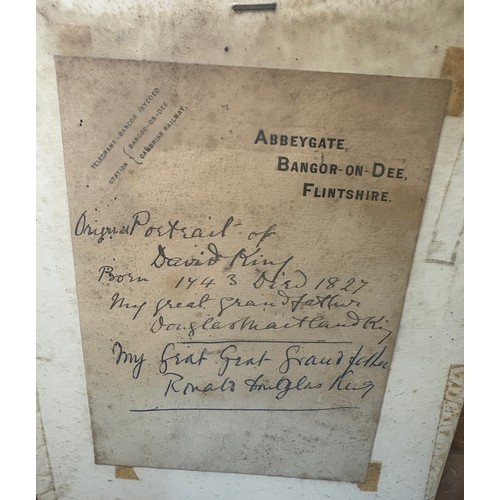 TELEGRAMS-BANGOR ISYCOED
STATION { BANGOR-ON-DEE
CAMBRIAN RAILWAY.
ABBEYGATE,
BANGOR-ON-DEE,
FLINTSHIRE.
Original Portrait of
David King
Born 1743 Died 1827
My great grandfather
Douglas Maitland King
My Great Great Grandfather
Ronald Douglas King